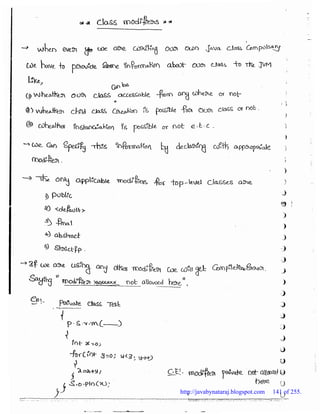 ** class modifiers **
→ when ever we are writing our own Java class compulsory
we have to provide some information about our class to the JVM
Like,
① whether our class can be accessible from any where or not
② whether child class creation is possible for our class or not.
③ whether instantiation is possible or not e.t.c.
→ we can specify this information by declaring with appropriate
modifier.
→ The only applicable modifiers for top-level classes are
1) public
2) <default>
3) final
4) abstract
5) strictfp.
→ If we are using any other modifier we will get CompileTimeError.
Saying "modifier not allowed here".
Ex:- private class Test
{
p.s.v.m(___)
{
int x=0;
for(int y=0; y<3; y++)
{
x=x+y;
}
S.o.pln(x);
}
}
C.E:- modifier private not allowed
here
http://javabynataraj.blogspot.com 141 of 255.